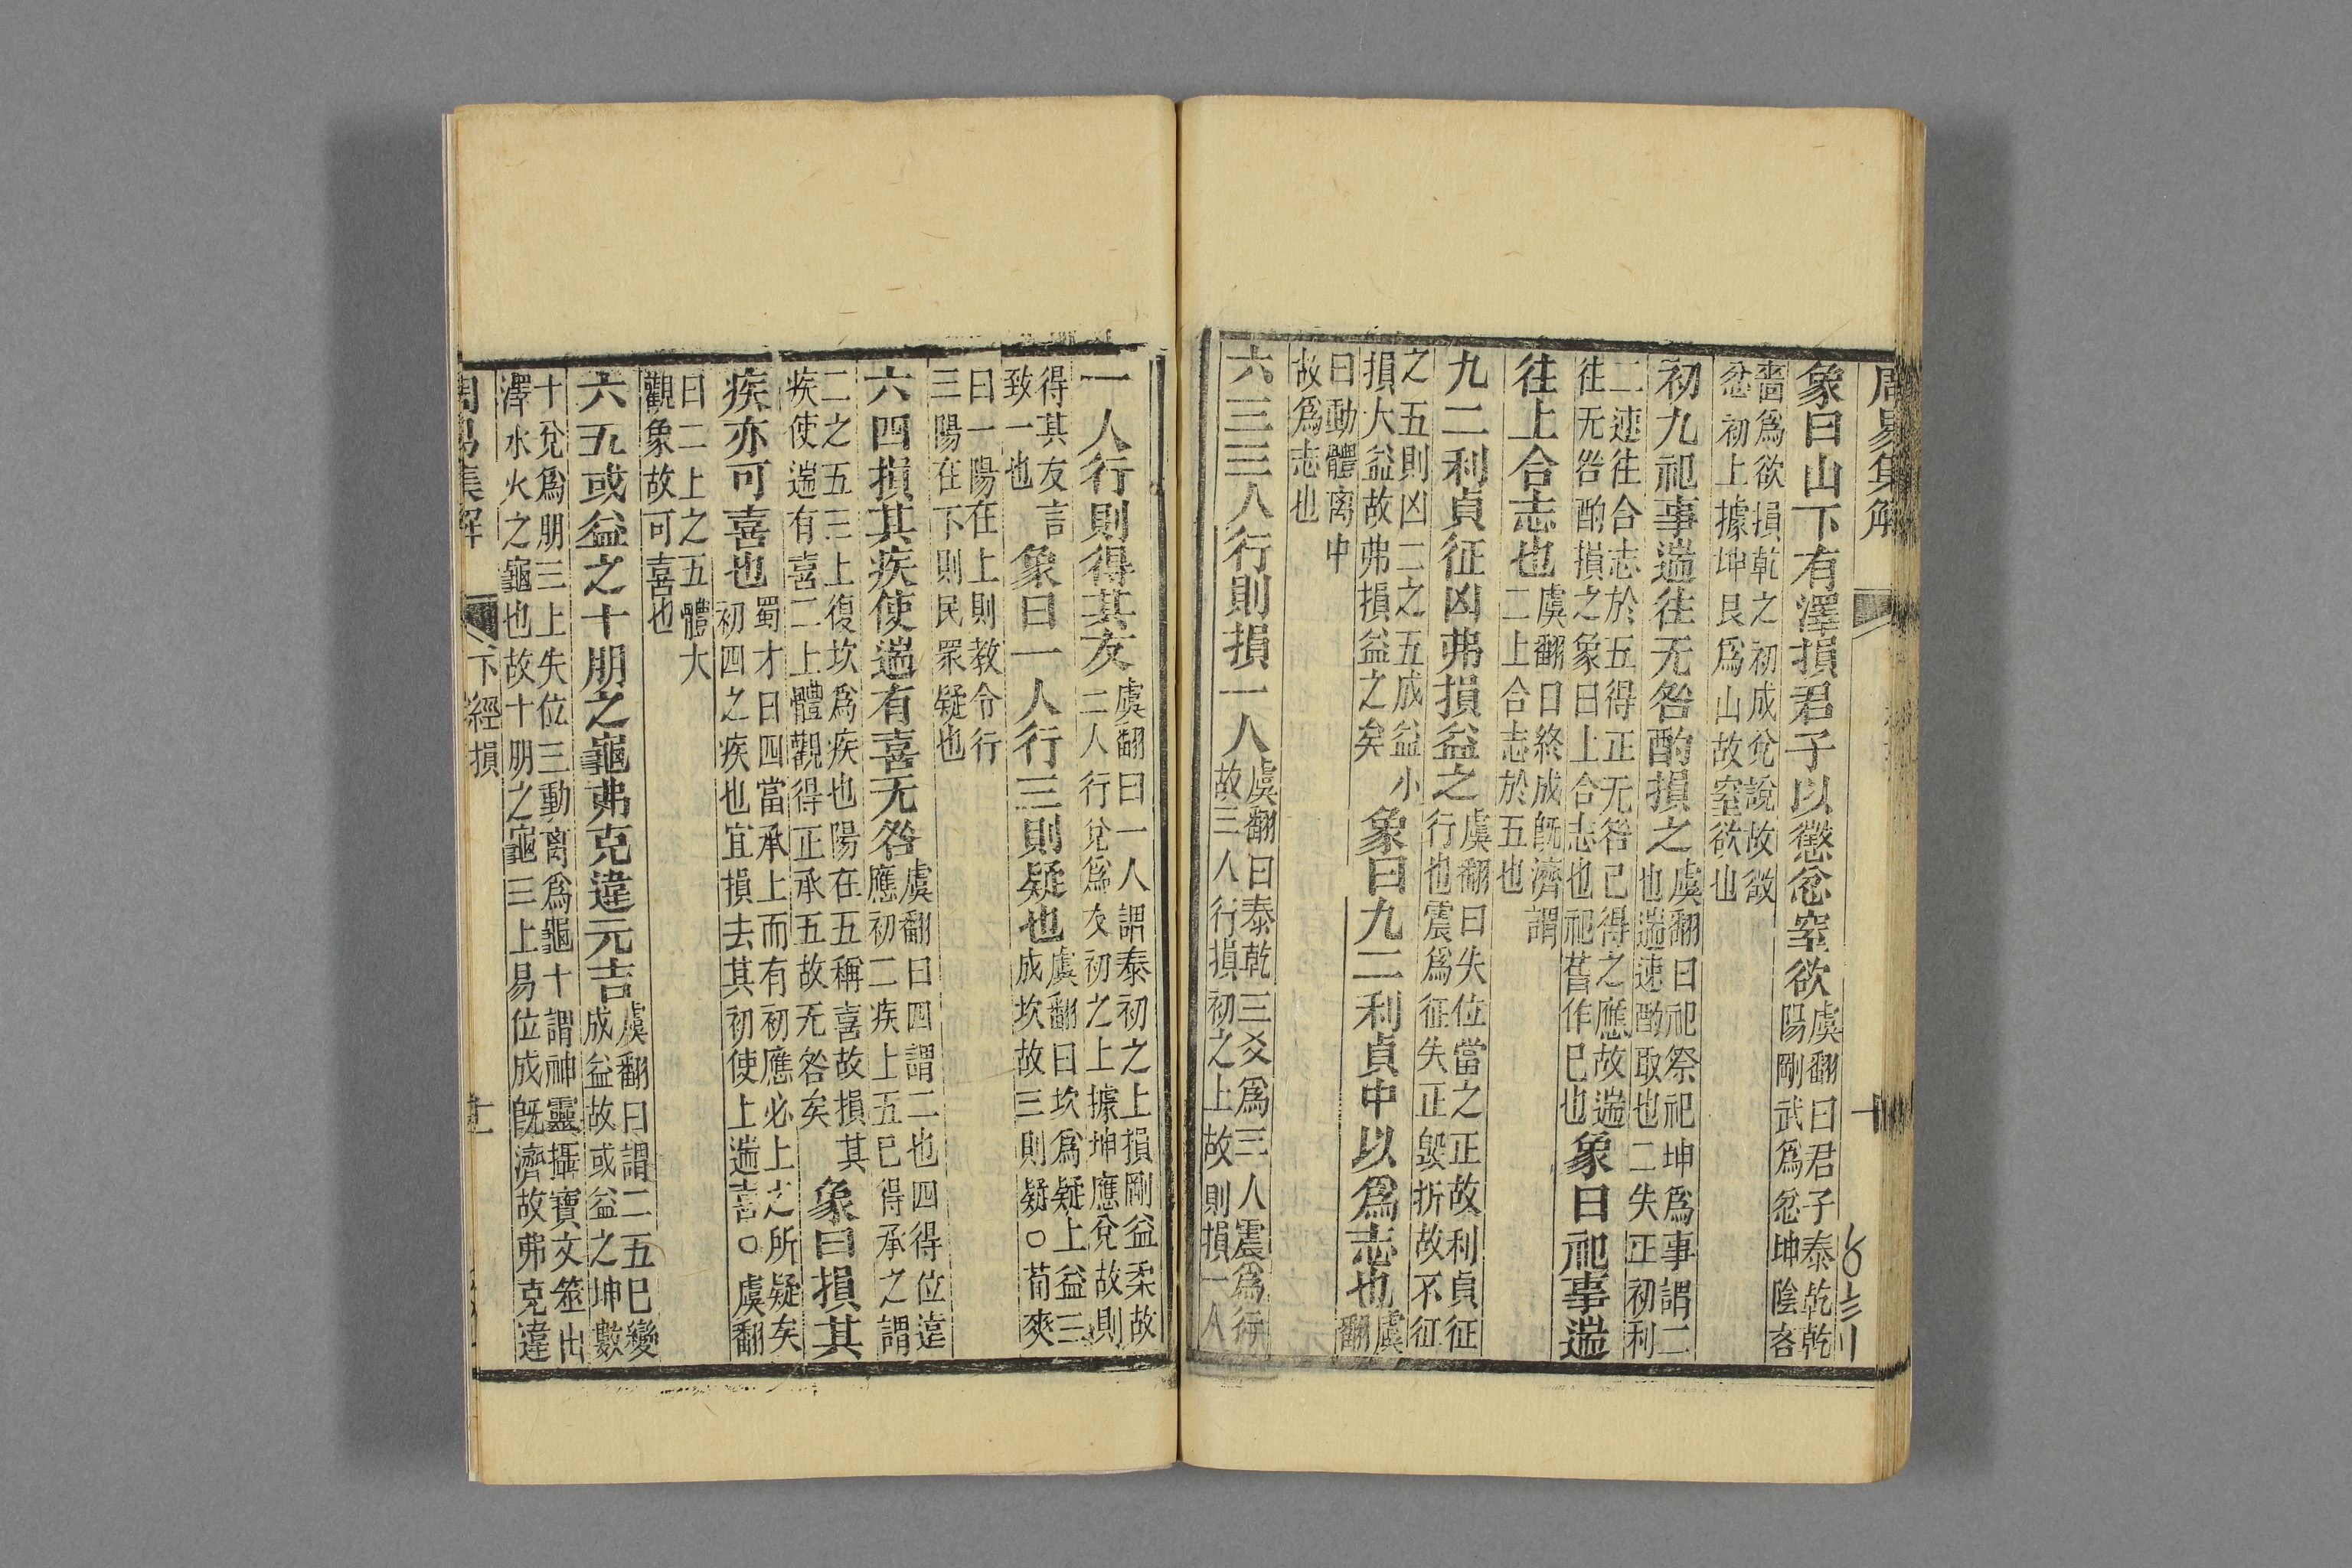 周易集解
象曰山下有澤損君子以懲忿窒欲虞翻曰君子泰乾乾
陽剛武爲忿坤陰吝
嗇爲欲損乾之初成兌說故徵
忿初上據坤艮爲山故窒欲也
初九祀事遄往无咎酌損之虞翻曰祀祭祀坤爲事謂二
也遄速酌取也二失正初利
二速往合志於五得正无咎已得之應故遄
往无咎酌損之象曰上合志也祀舊作巳也
象曰祀事遄
往上合志也虞翻曰終成旣濟謂
二上合志於五也
九二利貞征凶弗損益之虞翻曰失位當之正故利貞征
行也震爲征失正毀折故不征
之五則凶二之五成益小
損大益故弗損益之矣
象曰九二利貞中以爲志也虞
翻
曰動體离中
故爲志也
六三三人行則損一人虞翻曰泰乾三爻爲三人震爲行
故三人行損初之上故則損一人
一人行則得其友虞翻曰一人謂泰初之上損剛益柔故
二人行兌爲友初之上據坤應兌故則
得其友言
致一也
象曰一人行三則疑也虞翻曰坎爲疑上益三
成坎故三則疑○荀爽
曰一陽在上則教令行
三陽在下則民眾疑也
六四損其疾使遄有喜无咎虞翻曰四謂二也四得位遠
應初二疾上五巳得承之謂
二之五三上復坎爲疾也陽在五稱喜故損其
疾使遄有喜二上體觀得正承五故无咎矣
象曰損其
疾亦可喜也蜀才曰四當承上而有初應必上之所疑矣
初四之疾也宜損去其初使上遄喜○虞翻
曰二上之五體大
觀象故可喜也
六五或益之十朋之龜弗克違元吉虞翻曰謂二五巳變
成益故或益之坤數
十兌爲朋三上失位三動离爲龜十謂神靈攝寶文筮出
澤水火之龜也故十朋之龜三上易位成旣濟故弗克違
周易集解
下經損
十一